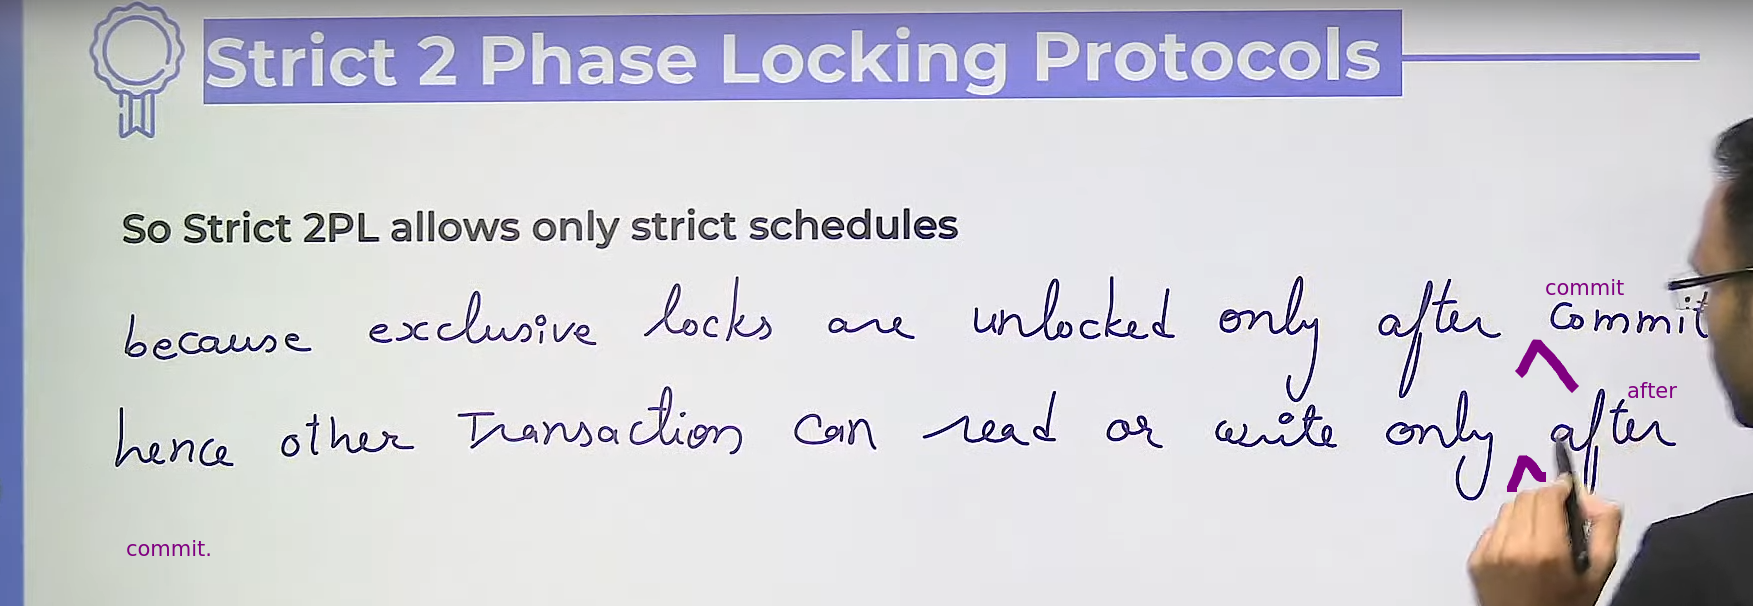 Strict 2 Phase Locking Protocols
So Strict 2PL allows only strict schedules
commit
because exclusive locks are unlocked only after commit
after
hence other Transaction can read or write only after
commit.